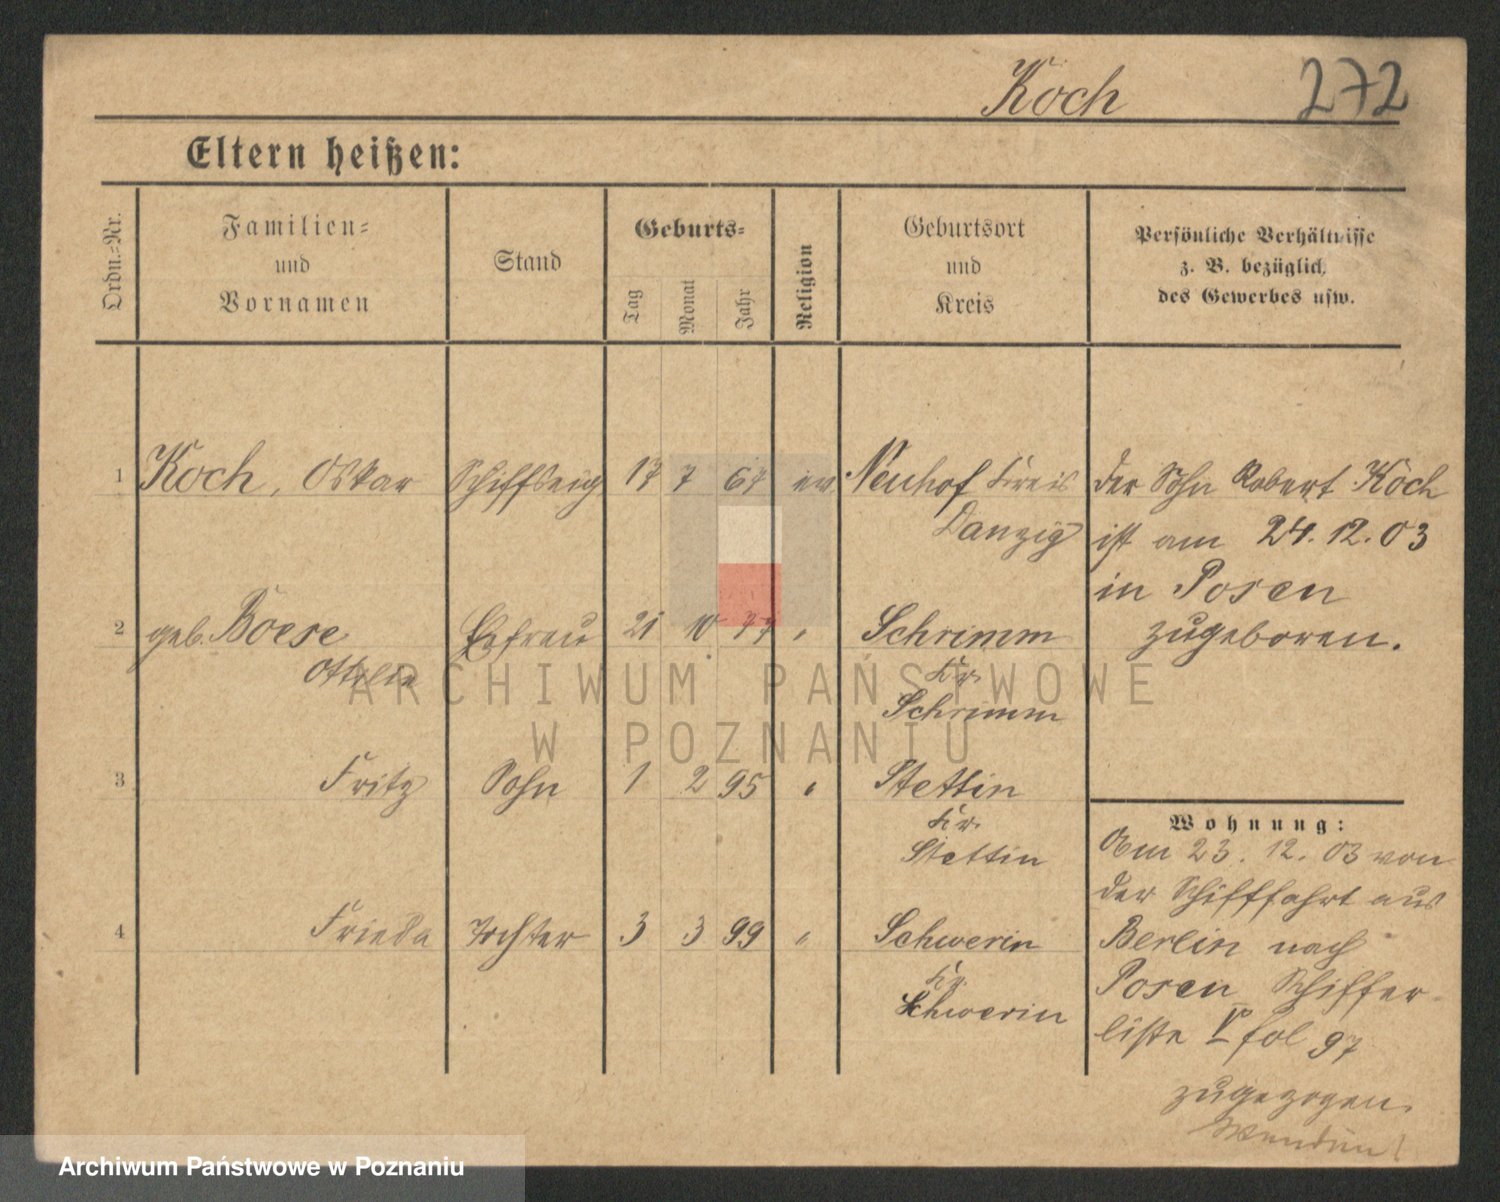 Koch 272
Eltern heißen:
Ordn.-Nr.
Familien-
und
Vornamen
Stand
Geburts-
Tag
Monat
Jahr
Religion
Geburtsort
und
Kreis
Persönliche Verhältnisse
z. B. bezüglich
des Gewerbes usw.
1 Koch, Oskar Schiffseig 17 7 67 ev Neuhof Kreis
Danzig
2 geb. Boese Ehefrau 21 10 77 " Schrimm
Ottilie Kr.
Schrimm
3 Fritz Sohn 1 2 95 " Stettin
Kr.
Stettin
4 Frieda Tochter 3 3 99 " Schwerin
Kr.
Schwerin
Der Sohn Robert Koch
ist am 24.12.03
in Posen
zugeboren.
Wohnung:
Am 23.12.03 von
der Schifffahrt aus
Berlin nach
Posen Schiffer-
liste V fol 97
zugezogen.
Wenden!
ARCHIWUM PAŃSTWOWE
W POZNANIU
Archiwum Państwowe w Poznaniu